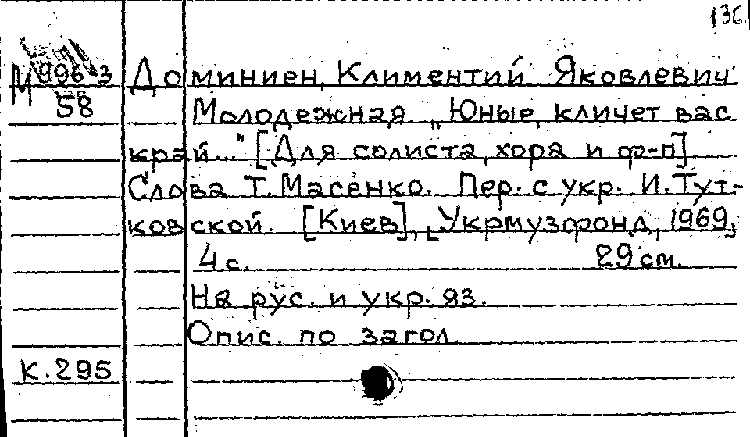 136.
М 996-3 Доминиен, Климентий Яковлевич
58 Молодежная „Юные, кличет вас
край..." [Для солиста, хора и ф-п]
Слова Т. Масенко. Пер. с укр. И. Тут-
ковской. [Киев], [Укрмузфонд, 1969]
4 с. 29 см.
На рус. и укр. яз.
Опис. по загол.
К. 295